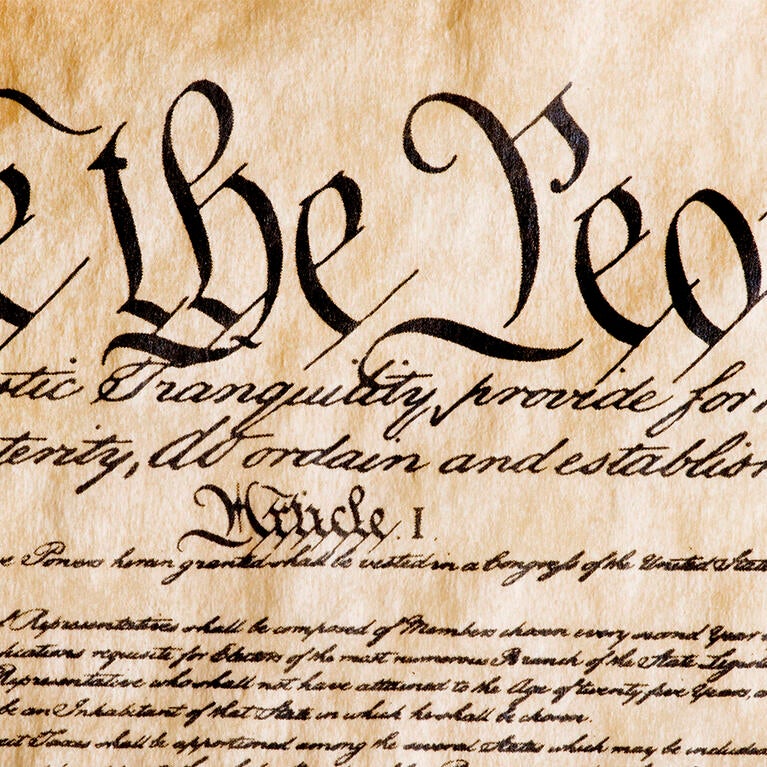 e the Peo
stic Tranquility, provide for
terity, do ordain and establish
Article. I.
e Powers herein granted shall be vested in a Congress of the United State
Representatives shall be composed of Members chosen every second Year
ications requisite for Electors of the most numerous Branch of the State Legisla
Representative who shall not have attained to the Age of twenty five Years, a
be an Inhabitant of that State in which he shall be chosen.
ect Taxes shall be apportioned among the several States which may be included